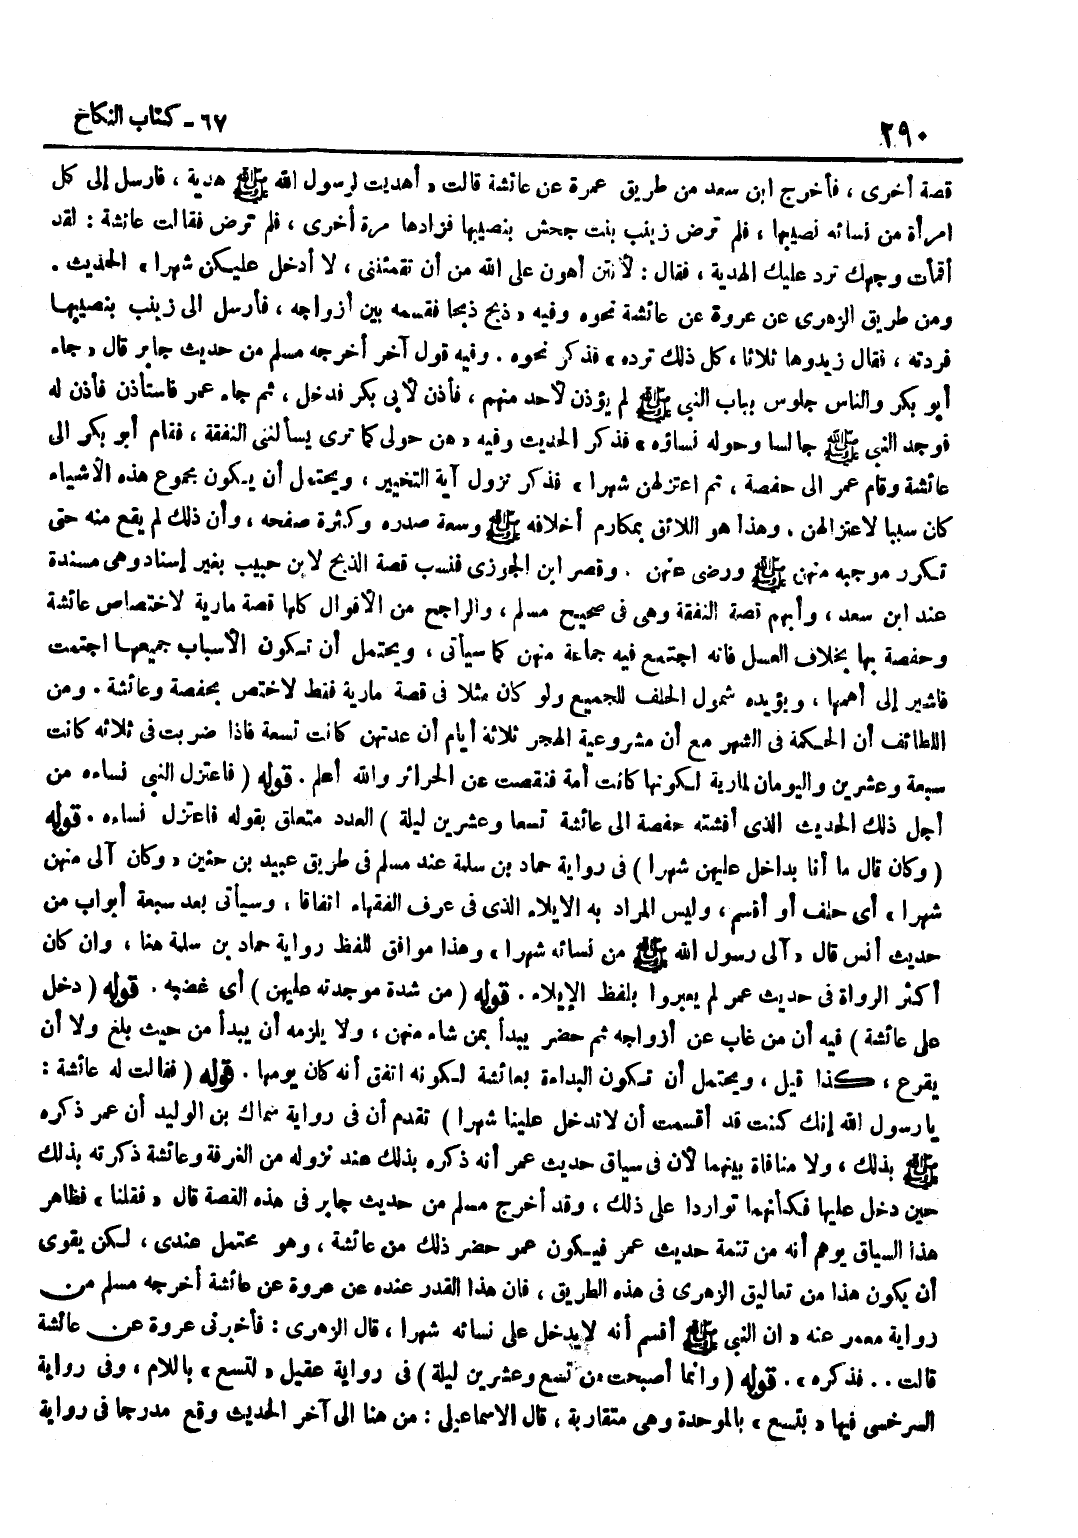 ٢٩٠ ٦٧ - كتاب النكاح
قصة أخرى ، فأخرج ابن سعد من طريق عمرة عن عائشة قالت « أهديت لرسول الله ﷺ هدية ، فارسل إلى كل
امرأة من نسائه نصيبها ، فلم ترض زينب بنت جحش بنصيبها فزادها مرة أخرى ، فلم ترض فقالت عائشة : لقد
أقمأت وجهك ترد عليك الهدية ، فقال : لأنتن أهون على الله من أن تقمئننى ، لا أدخل عليكن شهرا » الحديث .
ومن طريق الزهرى عن عروة عن عائشة نحوه وفيه « ذبح ذبحا فقسمه بين أزواجه ، فأرسل الى زينب بنصيبها
فردته ، فقال زيدوها ثلاثا ، كل ذلك ترده » فذكر نحوه . وفيه قول آخر أخرجه مسلم من حديث جابر قال « جاء
أبو بكر والناس جلوس بباب النبي ﷺ لم يؤذن لأحد منهم ، فأذن لأبى بكر فدخل ، ثم جاء عمر فاستأذن فأذن له
فوجد النبي ﷺ جالسا وحوله نساؤه » فذكر الحديث وفيه « هن حولى كما ترى يسألننى النفقة ، فقام أبو بكر الى
عائشة وقام عمر الى حفصة ، ثم اعتزلهن شهرا » فذكر نزول آية التخيير ، ويحتمل أن يكون مجموع هذه الأشياء
كان سببا لاعتزالهن . وهذا هو اللائق بمكارم أخلاقه ﷺ وسعة صدره وكثرة صفحه ، وأن ذلك لم يقع منه حتى
تكرر موجبه منهن ﷺ ورضى عنهن . وقصر ابن الجوزى فنسب قصة الذبح لابن حبيب بغير إسناد وهى مسندة
عند ابن سعد ، وأبهم قصة النفقة وهى فى صحيح مسلم ، والراجح من الأقوال كلها قصة مارية لاختصاص عائشة
وحفصة بها بخلاف العسل فانه اجتمع فيه جماعة منهن كما سيأتى ، ويحتمل أن تكون الأسباب جميعها اجتمعت
فاشير إلى أهمها ، ويؤيده شمول الحلف للجميع ولو كان مثلا فى قصة مارية فقط لاختص بحفصة وعائشة . ومن
اللطائف أن الحكمة فى الشهر مع أن مشروعية الهجر ثلاثة أيام أن عدتهن كانت تسعة فاذا ضربت فى ثلاثة كانت
سبعة وعشرين واليومان لمارية لكونها كانت أمة فنقصت عن الحرائر والله أعلم . قوله ( فاعتزل النبي نساءه من
أجل ذلك الحديث الذى أفشته حفصة الى عائشة تسعا وعشرين ليلة ) العدد متعلق بقوله فاعتزل نساءه . قوله
( وكان قال ما أنا بداخل عليهن شهرا ) فى رواية حماد بن سلمة عند مسلم فى طريق عبيد بن حنين « وكان آلى منهن
شهرا » أى حلف أو أقسم ، وليس المراد به الايلاء الذى فى عرف الفقهاء اتفاقا ، وسيأتى بعد سبعة أبواب من
حديث أنس قال « آلى رسول الله ﷺ من نسائه شهرا » وهذا موافق للفظ رواية حماد بن سلمة هنا ، وان كان
أكثر الرواة فى حديث عمر لم يعبروا بلفظ الإيلاء . قوله ( من شدة موجدته عليهن ) أى غضبه . قوله ( دخل
على عائشة ) فيه أن من غاب عن أزواجه ثم حضر يبدأ بمن شاء منهن ، ولا يلزمه أن يبدأ من حيث بلغ ولا أن
يقرع ، كذا قيل ، ويحتمل أن تكون البداءة بعائشة لكونه اتفق أنه كان يومها . قوله ( فقالت له عائشة :
يا رسول الله إنك كنت قد أقسمت أن لاتدخل علينا شهرا ) تقدم أن فى رواية سماك بن الوليد أن عمر ذكره
ﷺ بذلك ، ولا منافاة بينهما لأن فى سياق حديث عمر أنه ذكره بذلك عند نزوله من الغرفة وعائشة ذكرته بذلك
حين دخل عليها فكأنهما تواردا على ذلك ، وقد أخرج مسلم من حديث جابر فى هذه القصة قال « فقلنا » فظاهر
هذا السياق يوهم أنه من تتمة حديث عمر فيكون عمر حضر ذلك من عائشة ، وهو محتمل عندى ، لكن يقوى
أن يكون هذا من تعاليق الزهرى فى هذه الطريق ، فان هذا القدر عنده عن عروة عن عائشة أخرجه مسلم من
رواية معمر عنه « ان النبي ﷺ أقسم أنه لايدخل على نسائه شهرا ، قال الزهرى : فأخبرنى عروة عن عائشة
قالت . . فذكره » . قوله ( وانما أصبحت من تسع وعشرين ليلة ) فى رواية عقيل « لتسع » باللام ، وفى رواية
السرخسى فيها « بتسع » بالموحدة وهى متقاربة ، قال الاسماعيلى : من هنا الى آخر الحديث وقع مدرجا فى رواية